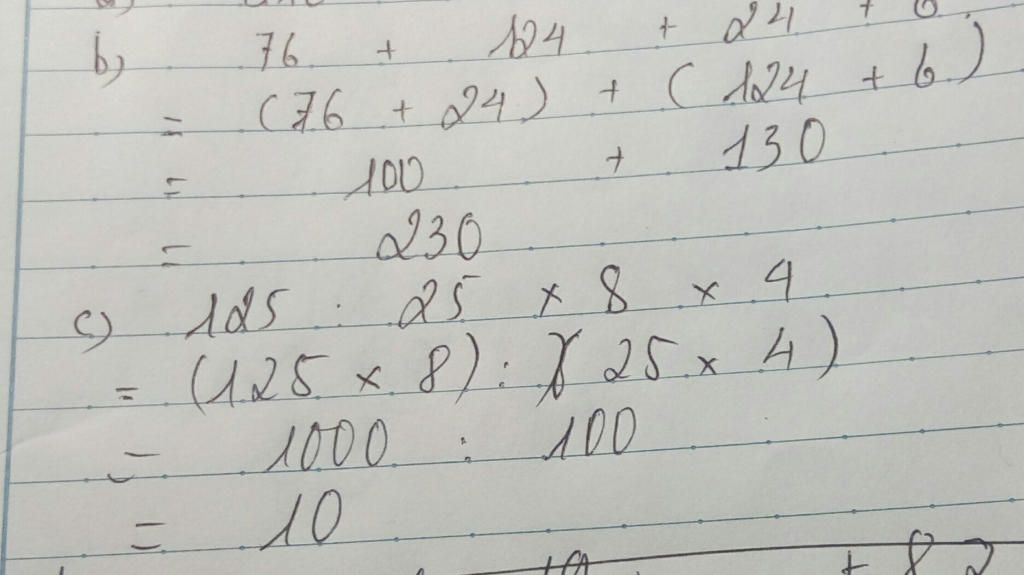 b) 76 + 124 + 24 + 6
= (76 + 24) + (124 + 6)
= 100 + 130
= 230
c) 125 : 25 × 8 × 4
= (125 × 8) : (25 × 4)
= 1000 : 100
= 10
+ 82